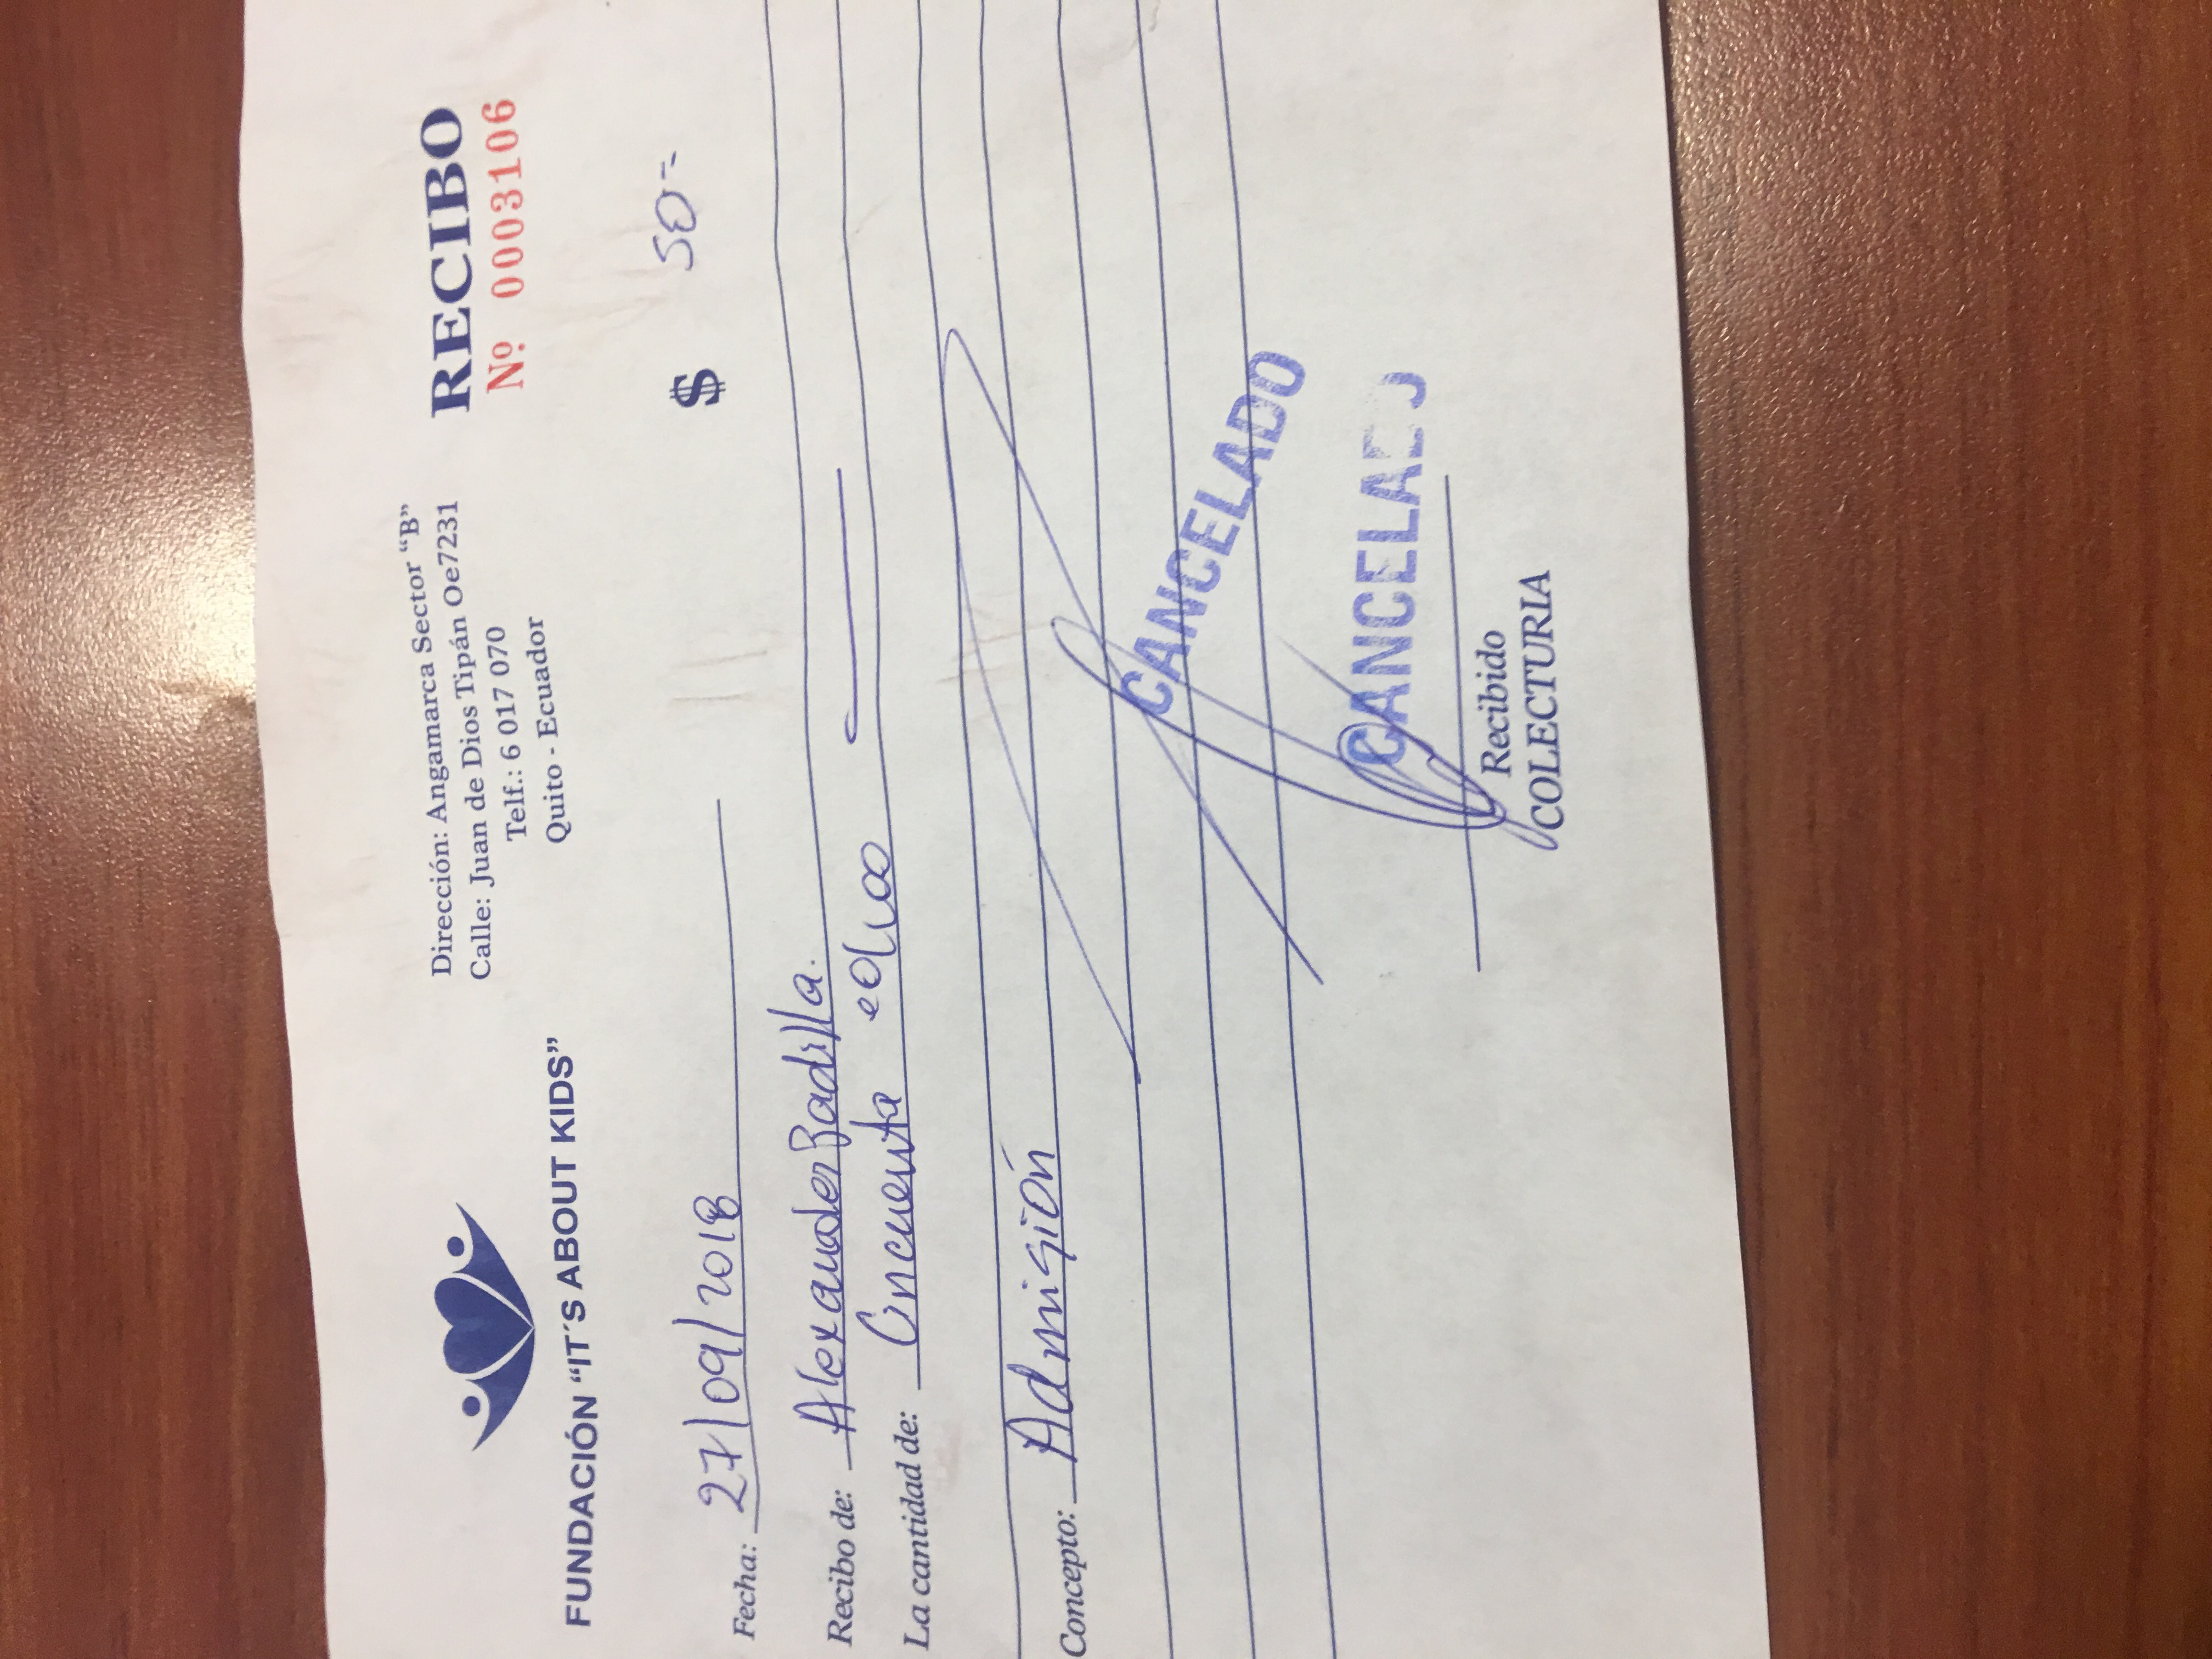 FUNDACIÓN “IT´S ABOUT KIDS”
Dirección: Angamarca Sector “B”
Calle: Juan de Dios Tipán Oe7231
Telf.: 6 017 070
Quito - Ecuador
RECIBO
Nº 0003106
$ 50=
Fecha: 27/09/2018
Recibo de: Alexander Badilla.
La cantidad de: Cincuenta 00/100
Concepto: Admisión
CANCELADO
CANCELADO
Recibido
COLECTURIA